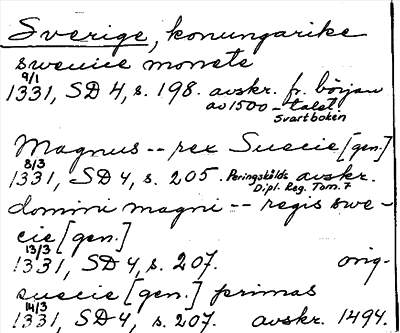 Sverige, konungarike
swenice monete
9/1
1331, SD 4, s. 198. avskr. fr. början
av 1500-talet
Svartboken
Magnus -- rex Suecie [gen.]
8/3
1331, SD 4, s. 205. Peringskölds avskr.
Dipl. Reg. Tom. 7
domini magni -- regis swe-
cie [gen.]
13/3
1331, SD 4, s. 207. orig.
suecie [gen.] primas
14/3
1331, SD 4, s. 207. avskr. 1494.